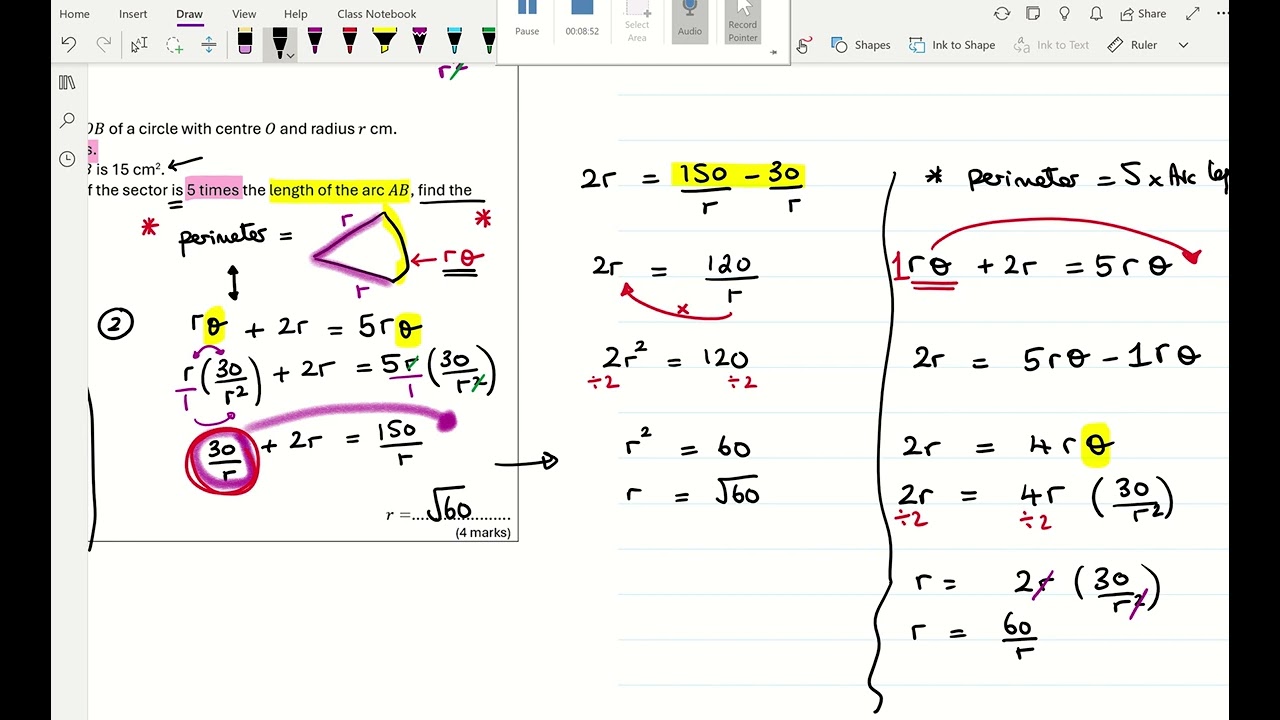 Home Insert Draw View Help Class Notebook
Pause 00:08:52 Select Area Audio Record Pointer
Share
Shapes Ink to Shape Ink to Text Ruler
OB of a circle with centre O and radius r cm.
s.
is 15 cm².
f the sector is 5 times the length of the arc AB, find the
* perimeter = *
r
r
← rθ
② rθ + 2r = 5rθ
r/1 (30/r²) + 2r = 5r/1 (30/r²)
30/r + 2r = 150/r
r = √60
(4 marks)
2r = 150/r - 30/r
2r = 120/r
×
2r² = 120
÷2 ÷2
r² = 60
r = √60
* perimeter = 5 × Arc
1rθ + 2r = 5rθ
2r = 5rθ - 1rθ
2r = 4rθ
2r = 4r (30/r²)
÷2 ÷2
r = 2r (30/r²)
r = 60/r